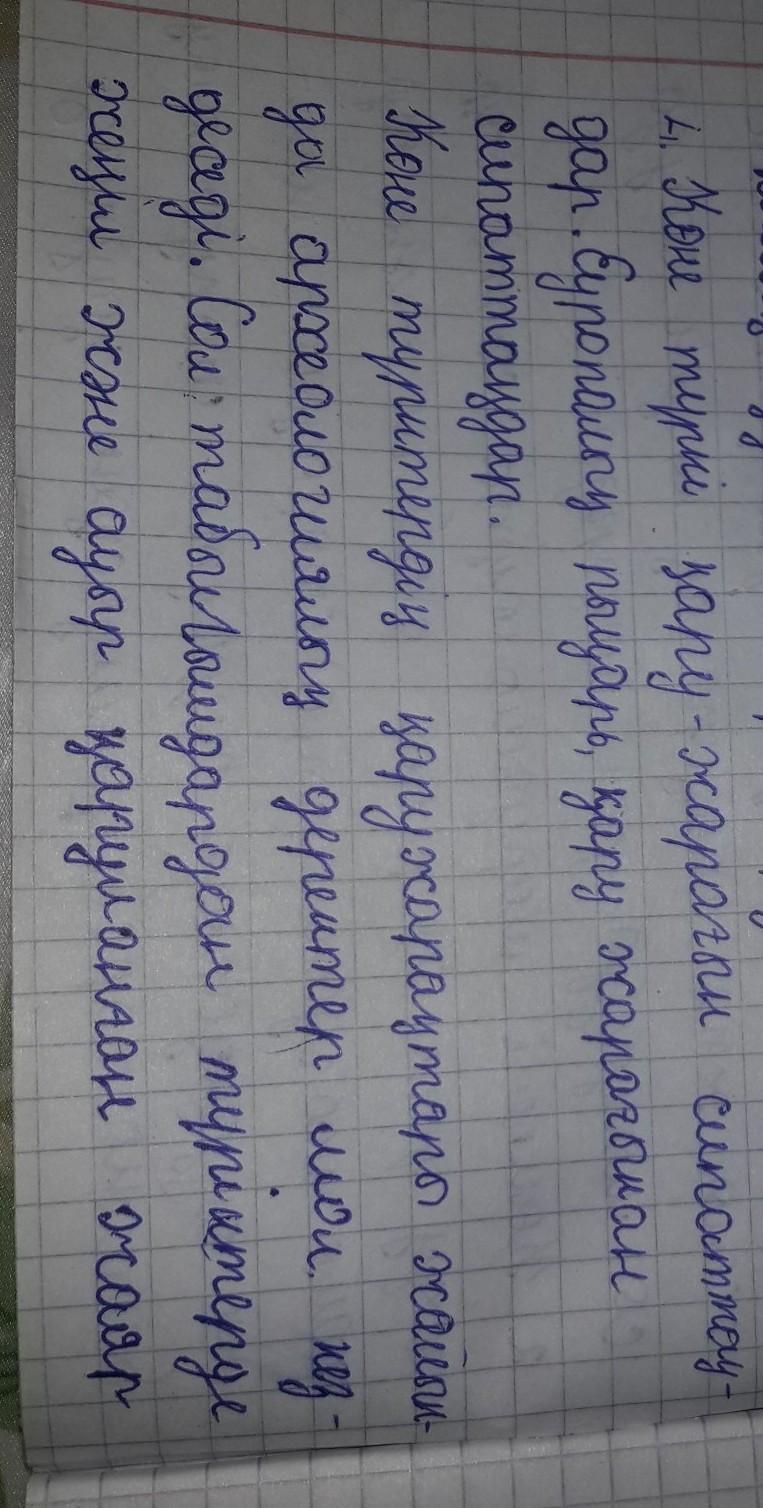 4. Көне түркі қару-жарағын сипаттау-
дар. Еуропалық рыцарь, қару жарағынан
сипаттаңдар.
Көне түріктердің қаружарақтары жайын-
да археологиялық деректер мол, кез-
деседі. Сол табылғымдардан түріктерде
жеңіл және ауыр қаруланған жаяр